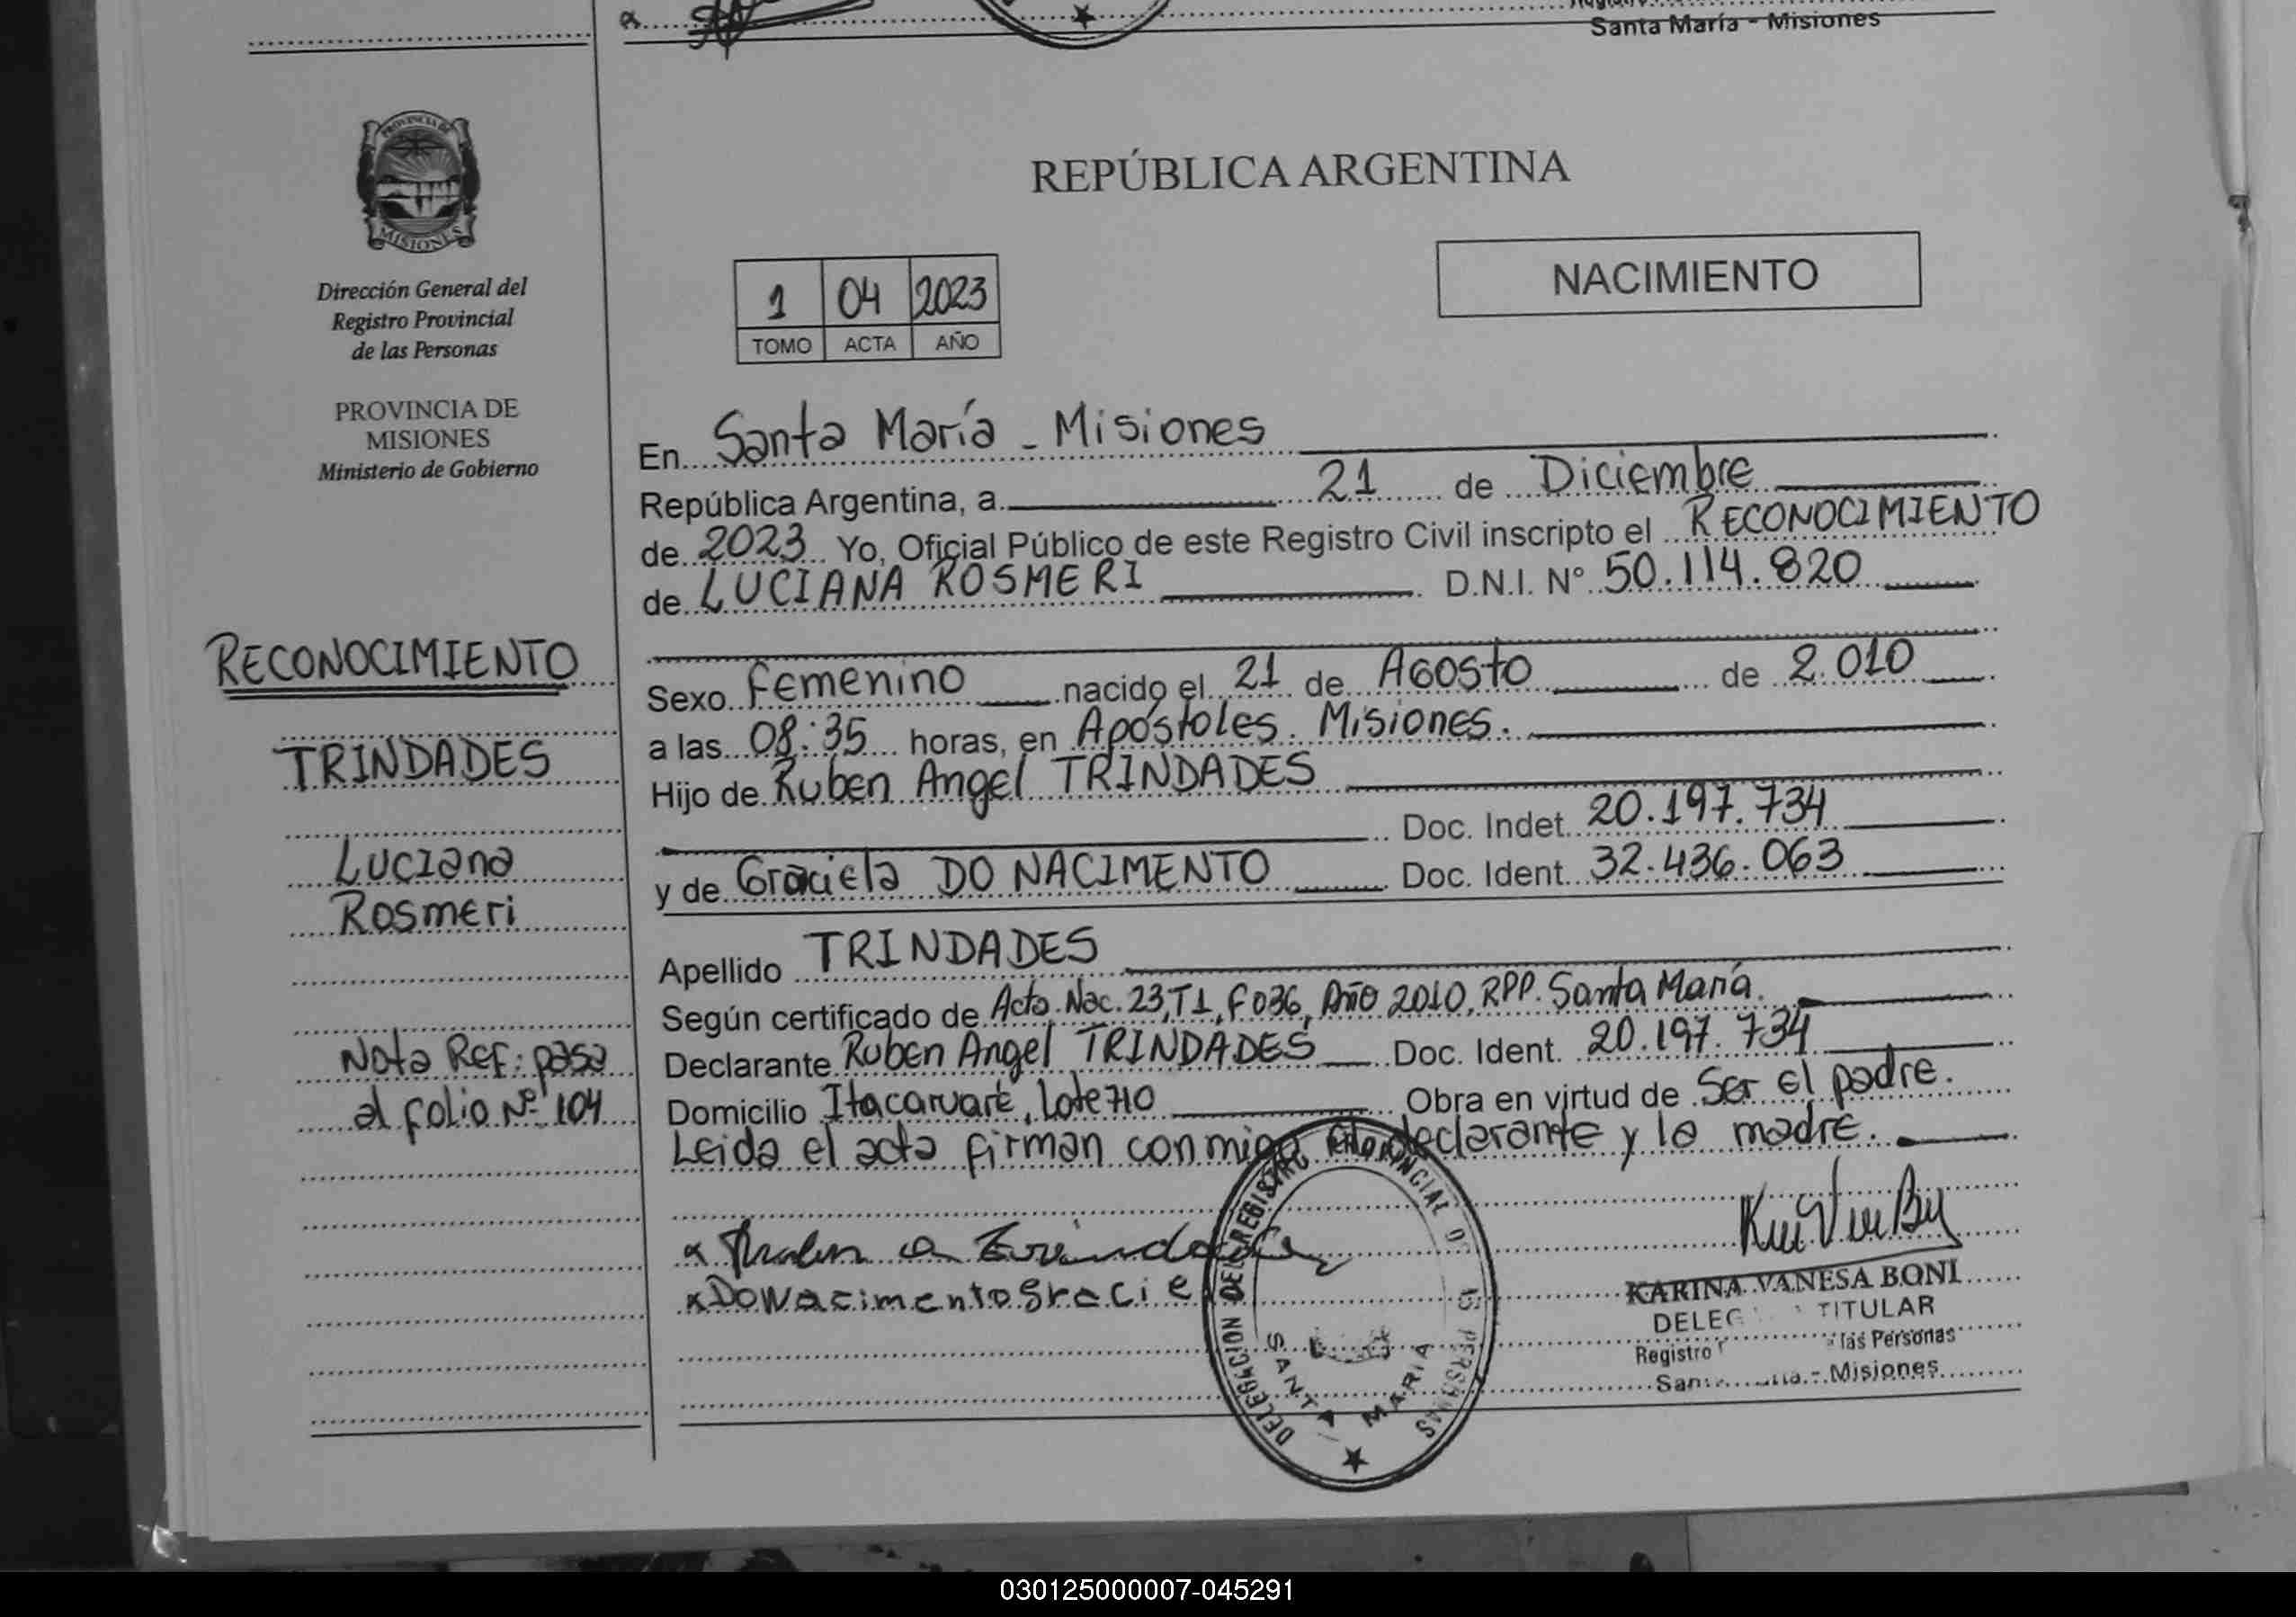 Santa María - Misiones
PROVINCIA DE
MISIONES
Dirección General del
Registro Provincial
de las Personas
PROVINCIA DE
MISIONES
Ministerio de Gobierno
RECONOCIMIENTO
TRINDADES
Luciana
Rosmeri
Nota Ref: pasa
al folio Nº 104
REPÚBLICA ARGENTINA
NACIMIENTO
1 04 2023
TOMO ACTA AÑO
En Santa María - Misiones
República Argentina, a 21 de Diciembre
de 2023 Yo, Oficial Público de este Registro Civil inscripto el RECONOCIMIENTO
de LUCIANA ROSMERI D.N.I. N° 50.114.820
Sexo Femenino nacido el 21 de Agosto de 2.010
a las 08:35 horas, en Apóstoles. Misiones.
Hijo de Ruben Angel TRINDADES
Doc. Indet. 20.197.734
y de Graciela DO NACIMENTO Doc. Ident. 32.436.063
Apellido TRINDADES
Según certificado de Acta Nac. 23, T1, F036, Año 2010, RPP. Santa María.
Declarante Ruben Angel TRINDADES Doc. Ident. 20.197.734
Domicilio Itacaruaré, Lote 710 Obra en virtud de Ser el padre.
Leida el acta firman conmigo el declarante y la madre.
DoNacimento Gracie
KARINA VANESA BONI
DELEG TITULAR
Registro las Personas
San - Misiones
DELEGACION DEL REGISTRO PROVINCIAL DE LAS PERSONAS
SANTA MARIA
030125000007-045291